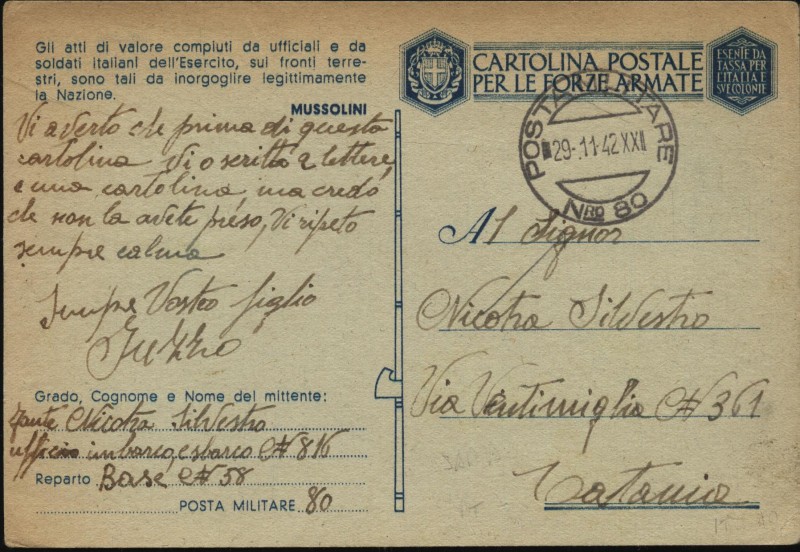 Gli atti di valore compiuti da ufficiali e da
soldati italiani dell'Esercito, sui fronti terre-
stri, sono tali da inorgoglire legittimamente
la Nazione.
MUSSOLINI
Vi averto che prima di questa
cartolina vi o scritto 2 lettere,
e una cartolina, ma credo
che non la avete preso, Vi ripeto
sempre calma
Sempre Vostro figlio
Grado, Cognome e Nome del mittente:
Fante Nicotra Silvestro
ufficio imbarco e sbarco N 816
Reparto Base N 58
POSTA MILITARE 80
CARTOLINA POSTALE
PER LE FORZE ARMATE
ESENTE DA
TASSA PER
L'ITALIA E
SVE COLONIE
POSTA MILITARE
29-.11.42 XXI
NRO 80
Al Signor
Nicotra Silvestro
Via Ventimiglia N 361
Catania